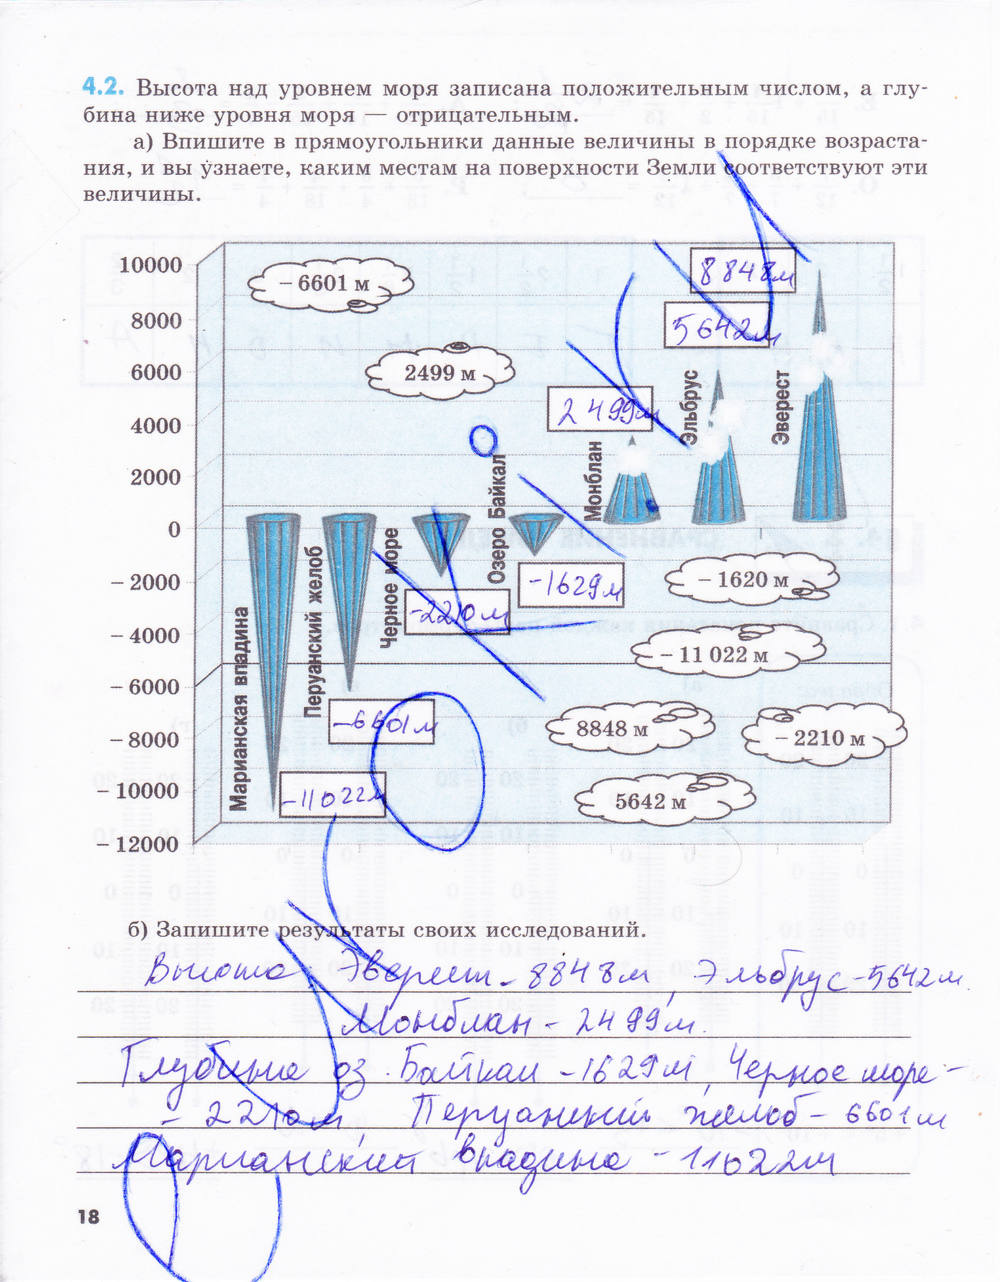 4.2. Высота над уровнем моря записана положительным числом, а глу-
бина ниже уровня моря — отрицательным.
а) Впишите в прямоугольники данные величины в порядке возраста-
ния, и вы узнаете, каким местам на поверхности Земли соответствуют эти
величины.
10000
8000
6000
4000
2000
0
– 2000
– 4000
– 6000
– 8000
– 10000
– 12000
– 6601 м
2499 м
8848м
5642м
2499м
Эверест
Эльбрус
Монблан
Озеро Байкал
Черное море
Перуанский желоб
Марианская впадина
-1629м
-2210м
-6601м
-11022м
– 1620 м
– 11 022 м
8848 м
– 2210 м
5642 м
б) Запишите результаты своих исследований.
Высота Эверест - 8848м, Эльбрус - 5642м
Монблан - 2499м.
Глубина оз. Байкал - 1629м, Черное море -
- 2210м, Перуанский желоб - 6601м
Марианский впадина - 11022м
18